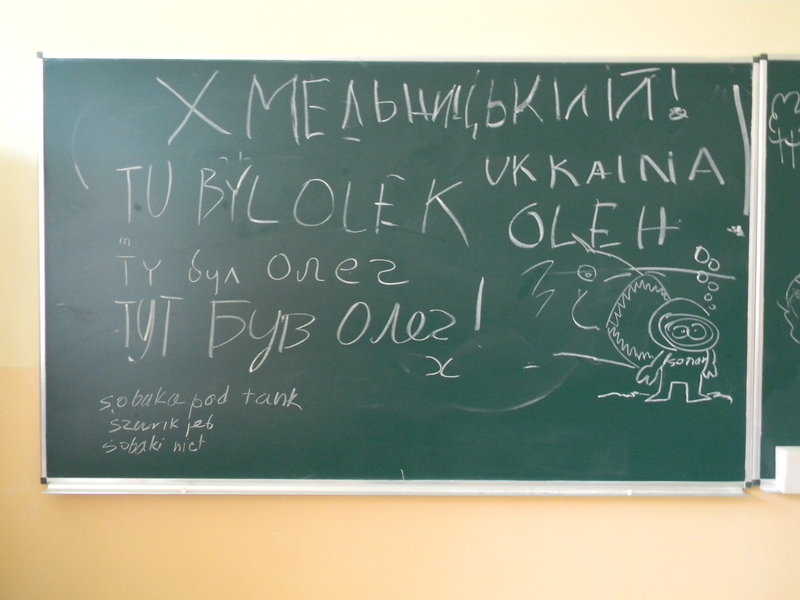 ХМЕЛЬНИЦЬКИЙ!
TU BYL OLEK
UKRAINA
OLEH
ТУ бул Олег
ТУТ БУВ Олег!
x
sobaka pod tank
szarik jeb
sobaki niet